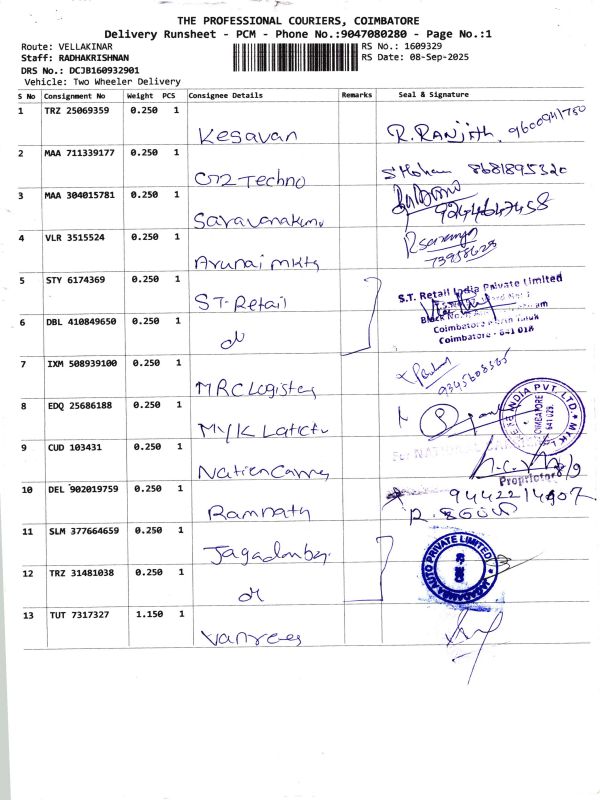 THE PROFESSIONAL COURIERS, COIMBATORE
Delivery Runsheet - PCM - Phone No.:9047080280 - Page No.:1
Route: VELLAKINAR
RS No.: 1609329
Staff: RADHAKRISHNAN
RS Date: 08-Sep-2025
DRS No.: DCJB160932901
Vehicle: Two Wheeler Delivery
S No Consignment No Weight PCS Consignee Details Remarks Seal & Signature
1 TRZ 25069359 0.250 1 Kesavan R. RANJith. 9600941750
2 MAA 711339177 0.250 1 G12 Techno S Mohan 8681895320
3 MAA 304015781 0.250 1 Saravanakumar 9244647458
4 VLR 3515524 0.250 1 Arunai mktg
5 STY 6174369 0.250 1 S.T-Retail S.T. Retail India Private Limited
Coimbatore - 641 018
6 DBL 410849650 0.250 1 do
7 IXM 508939100 0.250 1 MRC Logistics 9345608385
8 EDQ 25686188 0.250 1 MYK Laticte
9 CUD 103431 0.250 1 Proprietor
10 DEL 902019759 0.250 1 Ramnath
11 SLM 377664659 0.250 1 Jagadamba JAGADAMBA AUTO PRIVATE LIMITED
12 TRZ 31481038 0.250 1 do
13 TUT 7317327 1.150 1